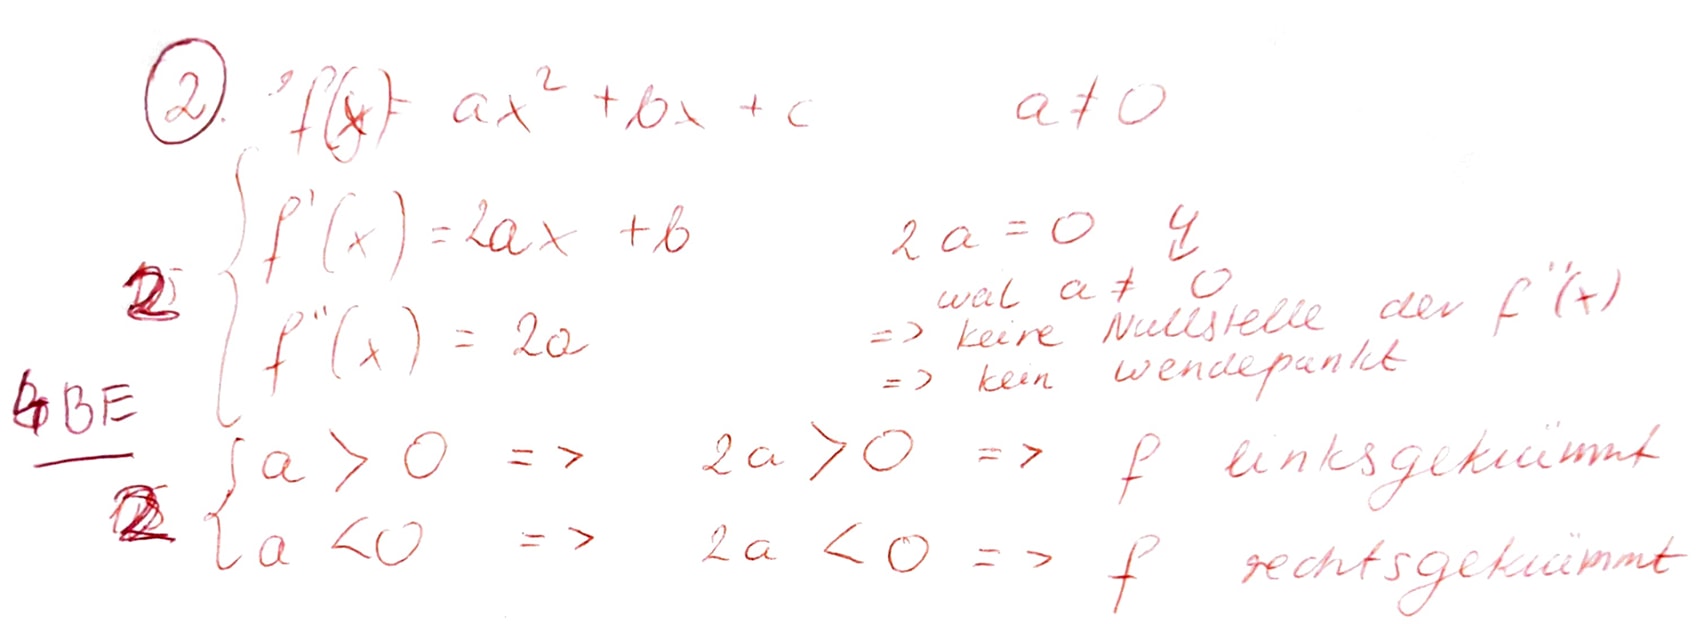 2. f(x) = ax² + bx + c a ≠ 0
f'(x) = 2ax + b 2a = 0 ↯
2 weil a ≠ 0
f''(x) = 2a => keine Nullstelle der f''(x)
=> kein Wendepunkt
4 BE
a > 0 => 2a > 0 => f linksgekrümmt
2
a < 0 => 2a < 0 => f rechtsgekrümmt